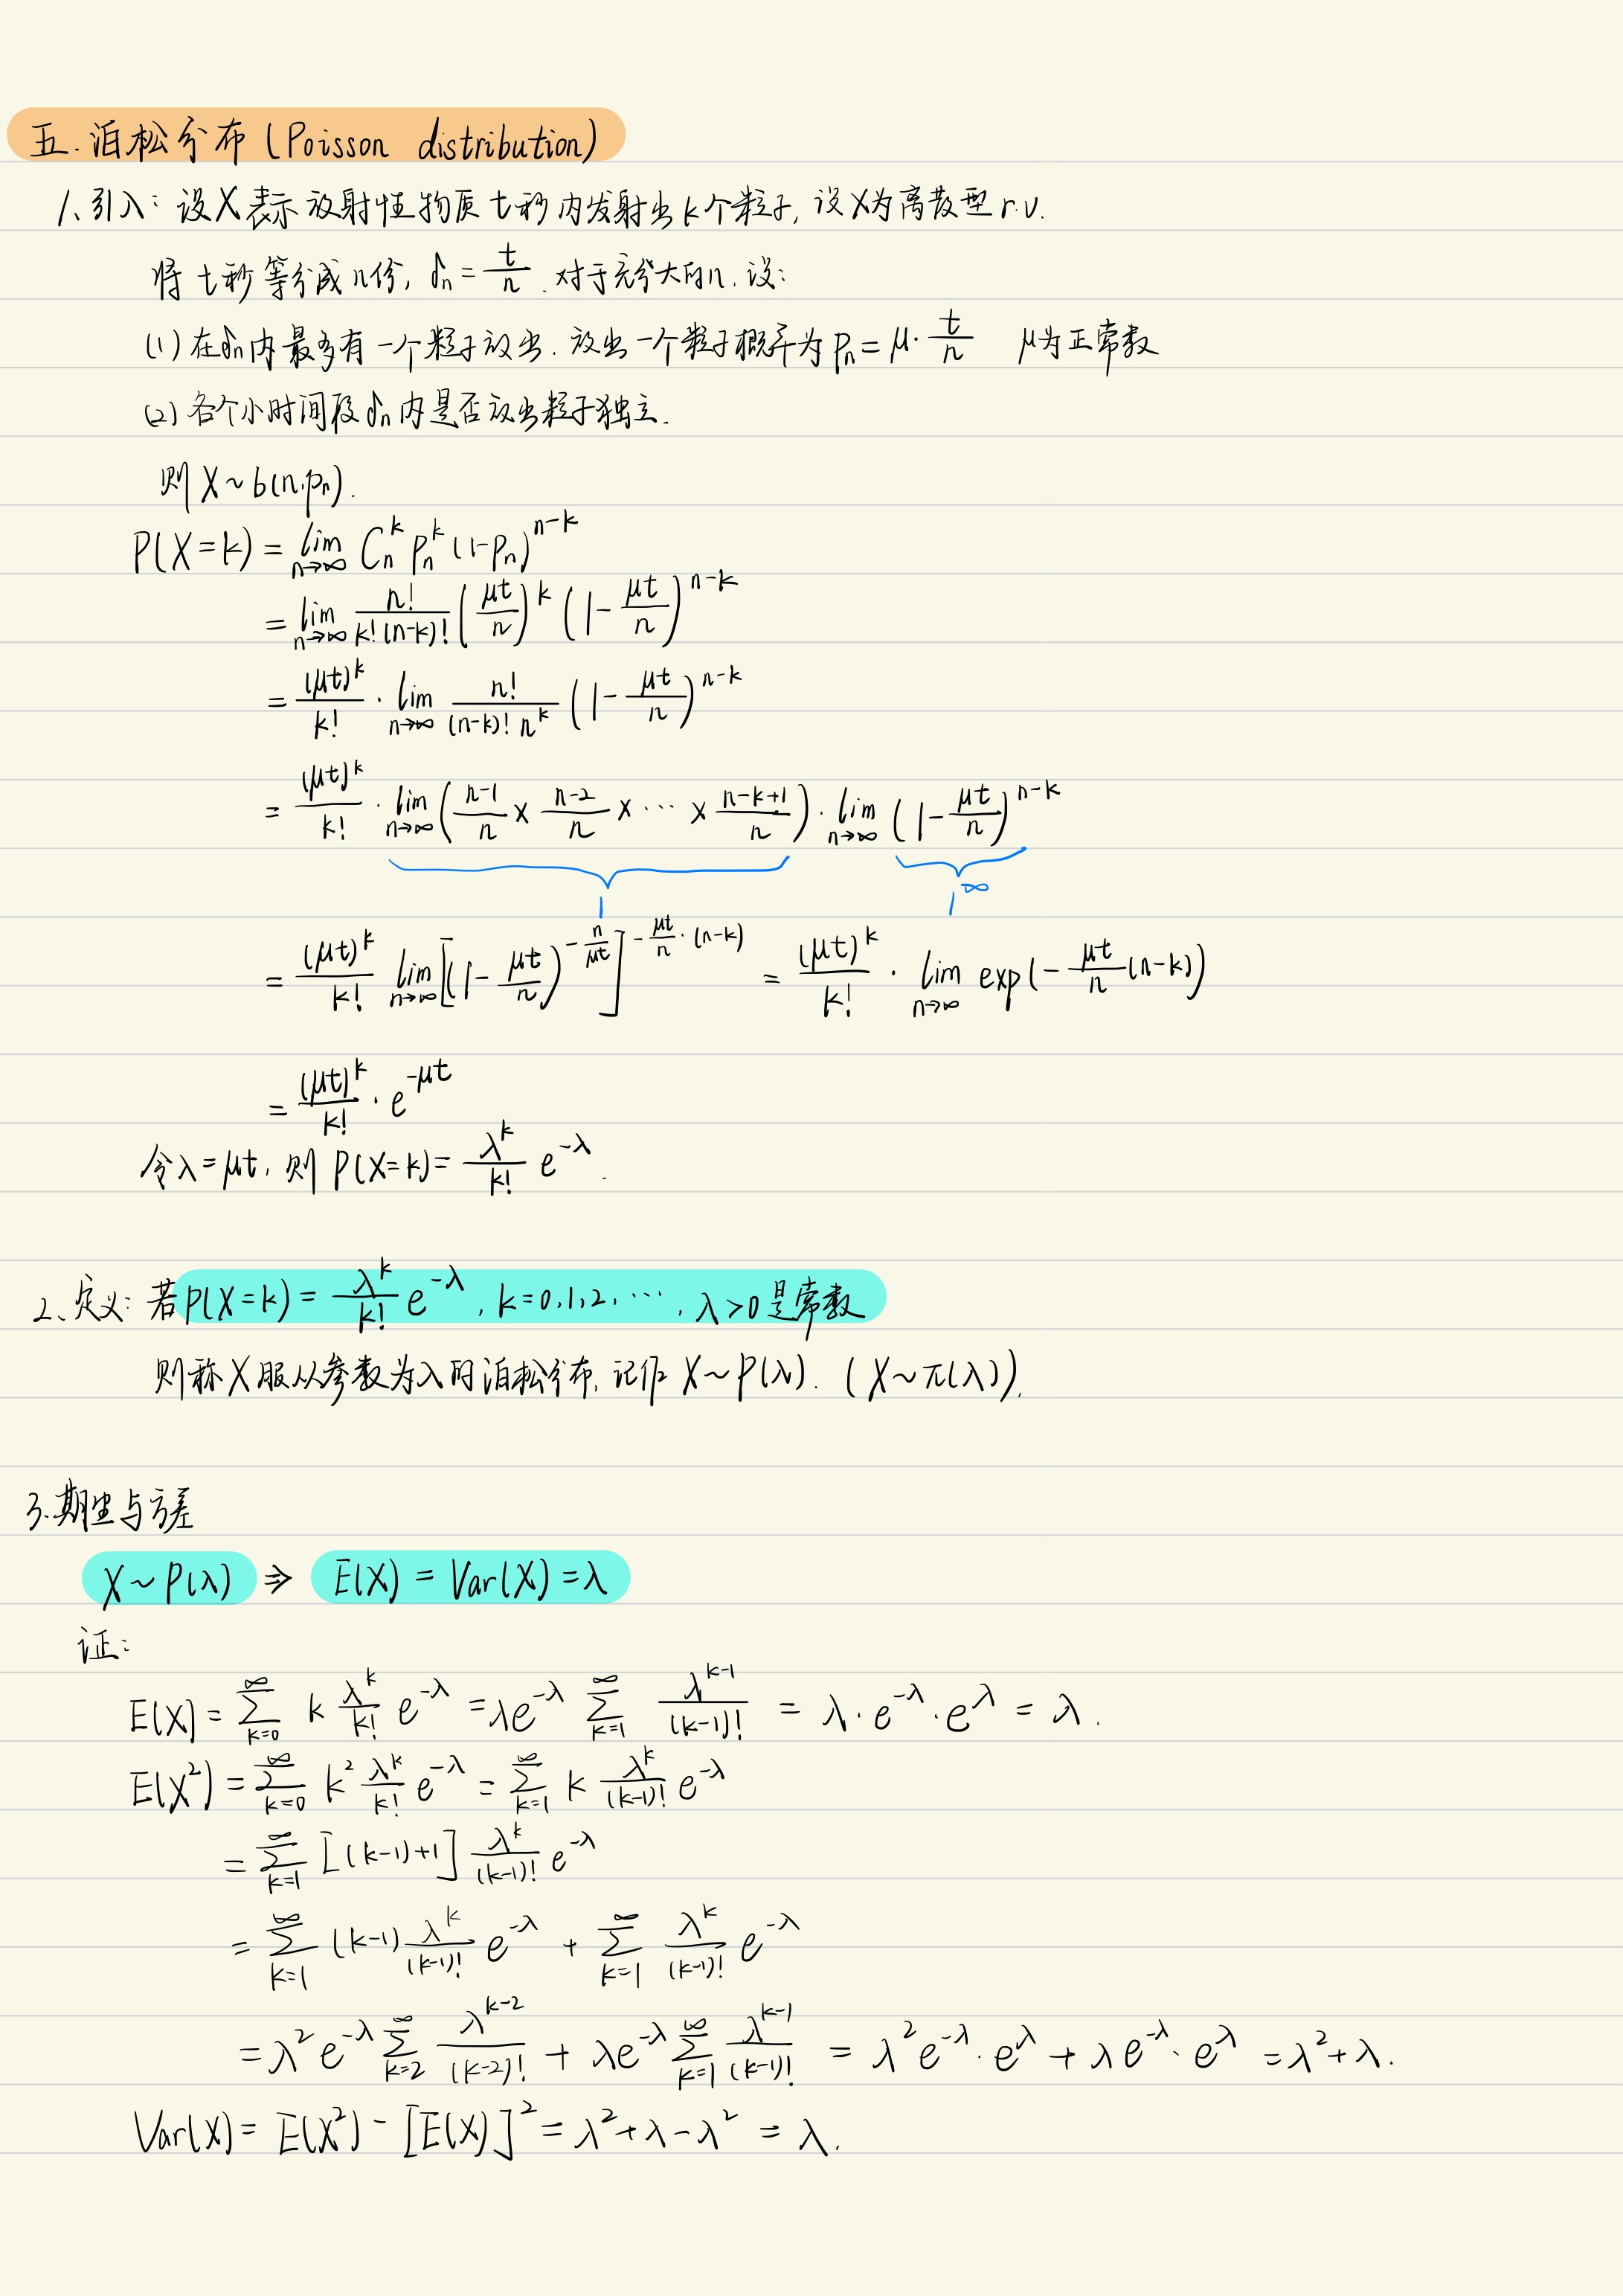 五.泊松分布(Poisson distribution)
1、引入:设X表示放射性物质t秒内发射出k个粒子,设X为离散型r.v.
将t秒等分成n份, δₙ = t/n . 对于充分大的n.设:
(1)在δₙ内最多有一个粒子放出.放出一个粒子概率为pₙ = μ·t/n μ为正常数
(2)各个小时间段δₙ内是否放出粒子独立.
则X~b(n,pₙ).
P(X=k) = lim_{n→∞} C_n^k p_n^k (1-pₙ)^{n-k}
= lim_{n→∞} n!/(k!(n-k)!) (μt/n)^k (1-μt/n)^{n-k}
= (μt)^k/k! · lim_{n→∞} n!/((n-k)! n^k) (1-μt/n)^{n-k}
= (μt)^k/k! · lim_{n→∞} ((n-1)/n × (n-2)/n × ··· × (n-k+1)/n) · lim_{n→∞} (1-μt/n)^{n-k}
1 1^∞
= (μt)^k/k! lim_{n→∞} [(1-μt/n)^{-n/μt}]^{-μt/n·(n-k)} = (μt)^k/k! · lim_{n→∞} exp(-μt/n(n-k))
= (μt)^k/k! · e^{-μt}
令λ=μt, 则P(X=k)= λ^k/k! e^{-λ}.
2、定义:若P(X=k) = λ^k/k! e^{-λ}, k=0,1,2,···, λ>0是常数
则称X服从参数为λ的泊松分布,记作X~P(λ). (X~π(λ)).
3.期望与方差
X~P(λ) ⇒ E(X) = Var(X) = λ
证:
E(X) = ∑_{k=0}^∞ k λ^k/k! e^{-λ} = λe^{-λ} ∑_{k=1}^∞ λ^{k-1}/(k-1)! = λ·e^{-λ}·e^λ = λ.
E(X²) = ∑_{k=0}^∞ k² λ^k/k! e^{-λ} = ∑_{k=1}^∞ k λ^k/(k-1)! e^{-λ}
= ∑_{k=1}^∞ [(k-1)+1] λ^k/(k-1)! e^{-λ}
= ∑_{k=1}^∞ (k-1) λ^k/(k-1)! e^{-λ} + ∑_{k=1}^∞ λ^k/(k-1)! e^{-λ}
= λ² e^{-λ} ∑_{k=2}^∞ λ^{k-2}/(k-2)! + λe^{-λ} ∑_{k=1}^∞ λ^{k-1}/(k-1)! = λ²e^{-λ}·e^λ + λe^{-λ}·e^λ = λ²+λ.
Var(X) = E(X²) - [E(X)]² = λ²+λ-λ² = λ.